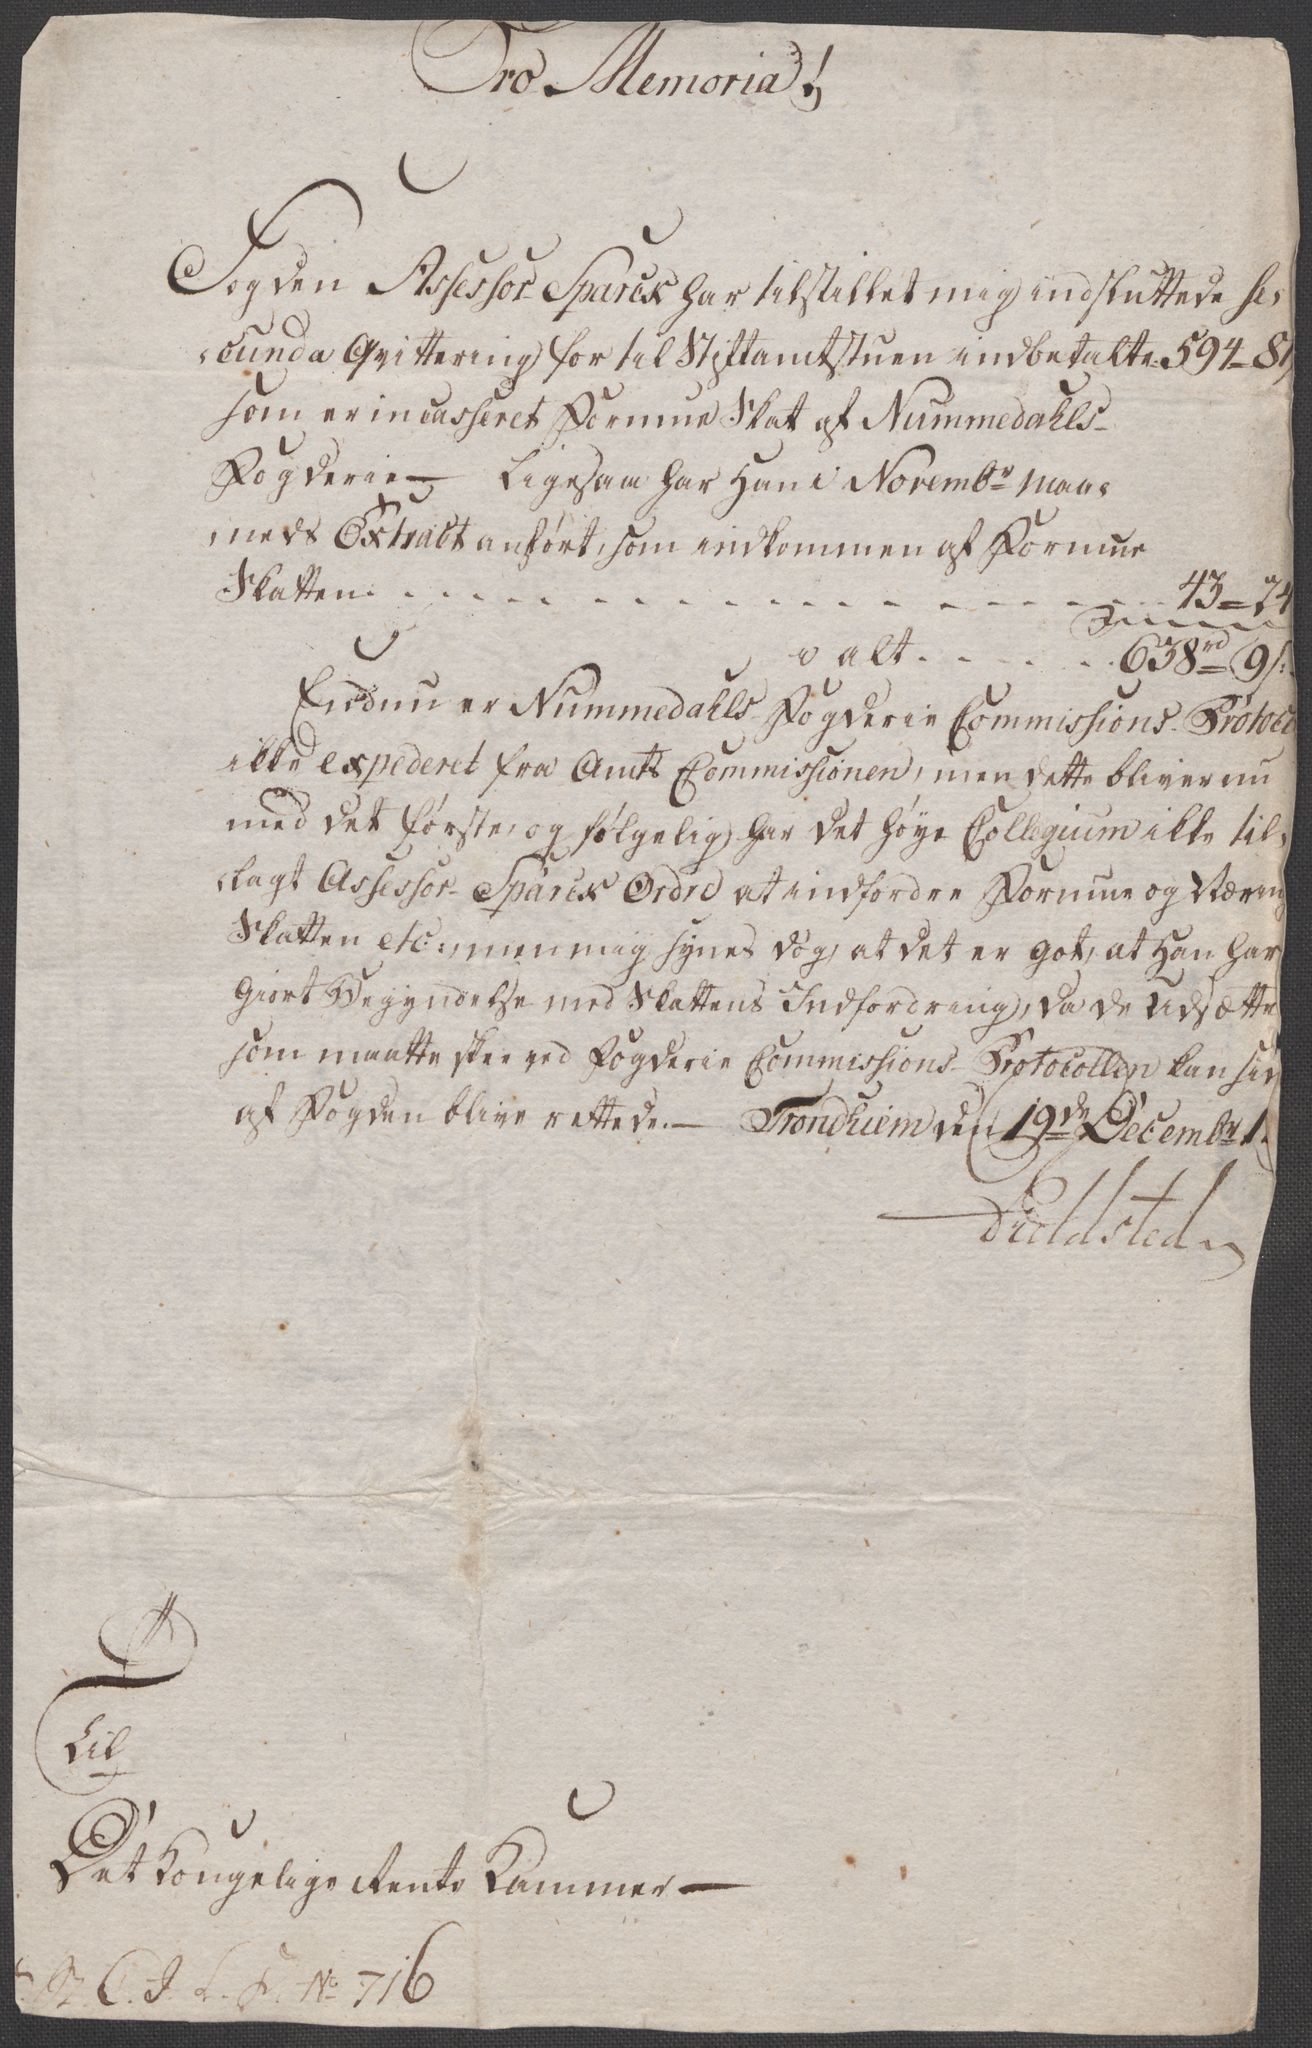 Pro Memoria!
Fogden Assessor Sparck har tilstillet mig indsluttede se,
,cunda Qvittering for til Stiftamtstuen indbetalte 594 - 81
som er incasseret Formue Skat af Nummedahls
Fogderie - Ligesaa har Han i Novembr Maa,
,neds Extract anført, som indkommen af Formue
Skatten . . . . . . . . . . . . . . . . 43 = 24
i alt . . . . . . 638rd 9s:
Endnu er Nummedahls Fogderie Commissions Protoco
ikke expederet fra Amts Commissionen, men dette bliver nu
med det første, og følgelig har det høye Collegium ikke til,
,lagt Assessor Sparck Ordre at indfordre Formue og Næring
Skatten etc:, men mig synes dog, at det er got, at Han har
giort Begyndelse med Skattens Indfordring, da de Udsætte
som maatte skee ved Fogderie Commissions Protocollen kan sid
af Fogden blive rettede. - Trondhiem den 19de Decembr 1
Fieldsted
Til
Det Kongelige Rente Kammer -
C. J. L. F. No 716